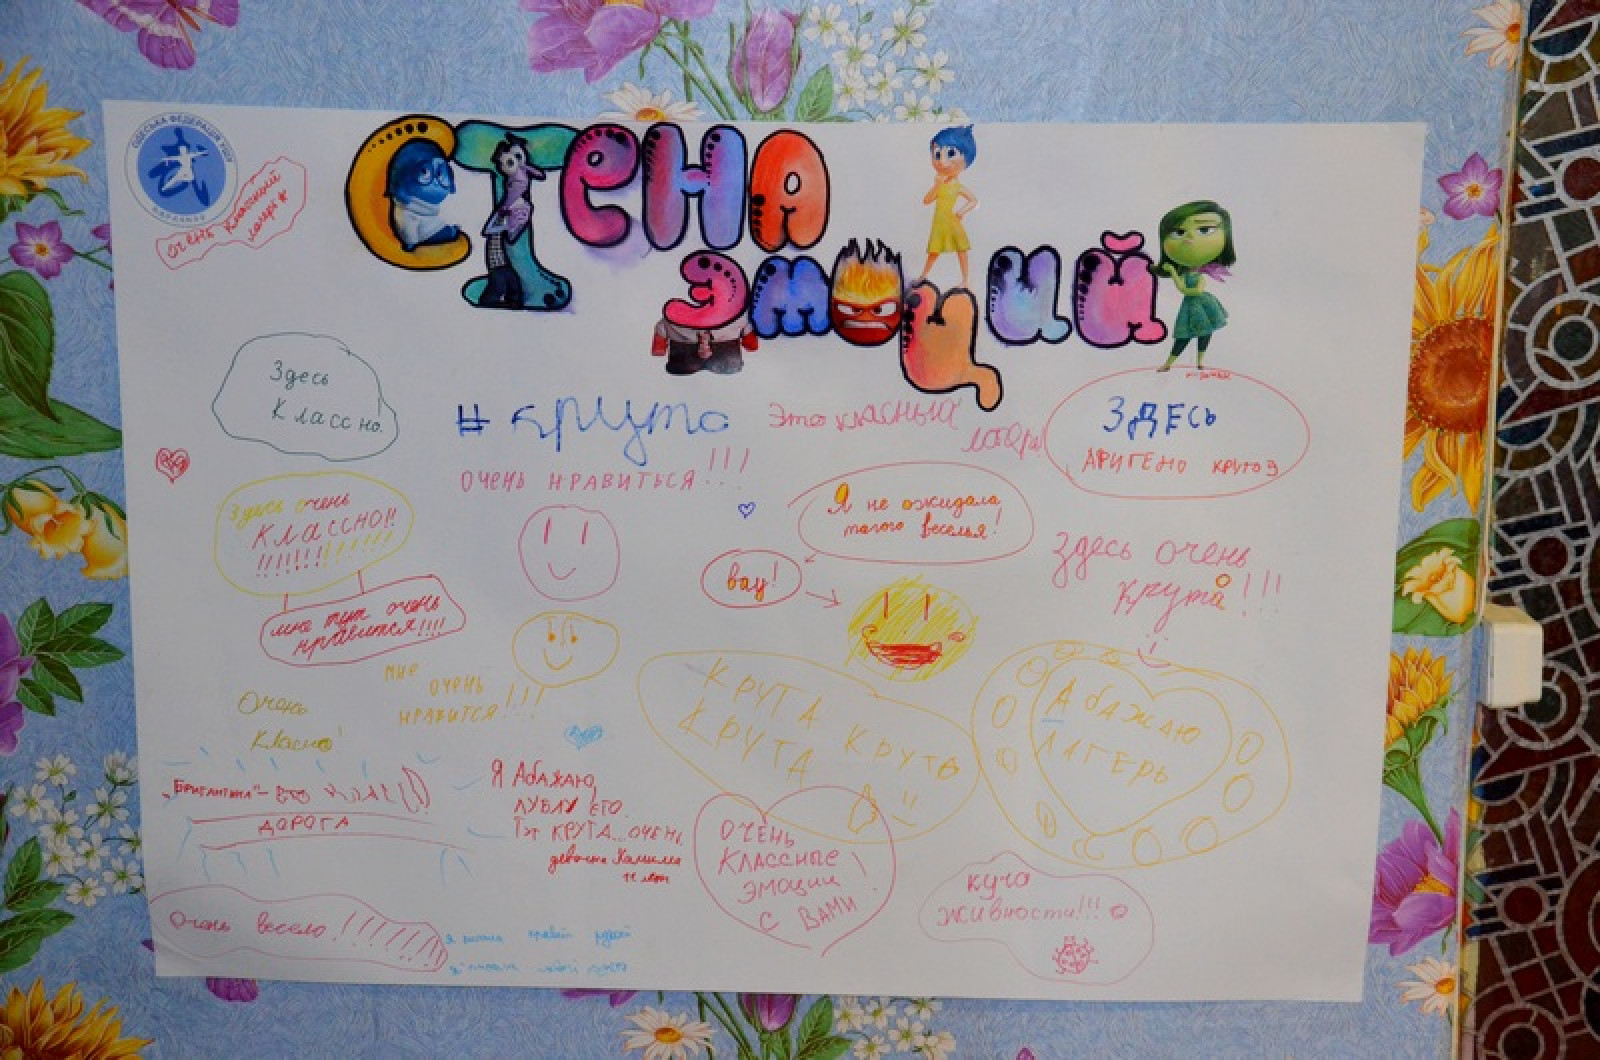 ОДЕСЬКА ФЕДЕРАЦІЯ УШУ
ОЧЕНЬ Классный
лагерь
СТЕНА
ЭМОЦИЙ
Здесь
Классно.
# круто
Это класный
ЗДЕСЬ
КРУТО
ОЧЕНЬ НРАВИТЬСЯ!!!
Здесь очень
КЛАССНО!!
!!!!!!!!!!!!!
Я не ожидала
такого веселья!
вау!
Здесь очень
круто!!!
мне тут очень
нравится!!!!
мне
очень
нравится!!!
Очень
класно!
КРУТА КРУТО
КРУТА
АбАЖАЮ
ЛАГЕРЬ
"Бригантина"- ЕТО
ДОРОГА
Я АбАЖАЮ,
ЛУБЛУ ЕГО.
Тут КРУТА...ОЧЕНЬ
девочка Камила
11 лет
ОЧЕНЬ
КЛАССНЫЕ
ЭМОЦИИ!
С ВАМИ
куча
живности!!!
Очень весело!!!!!!!!!